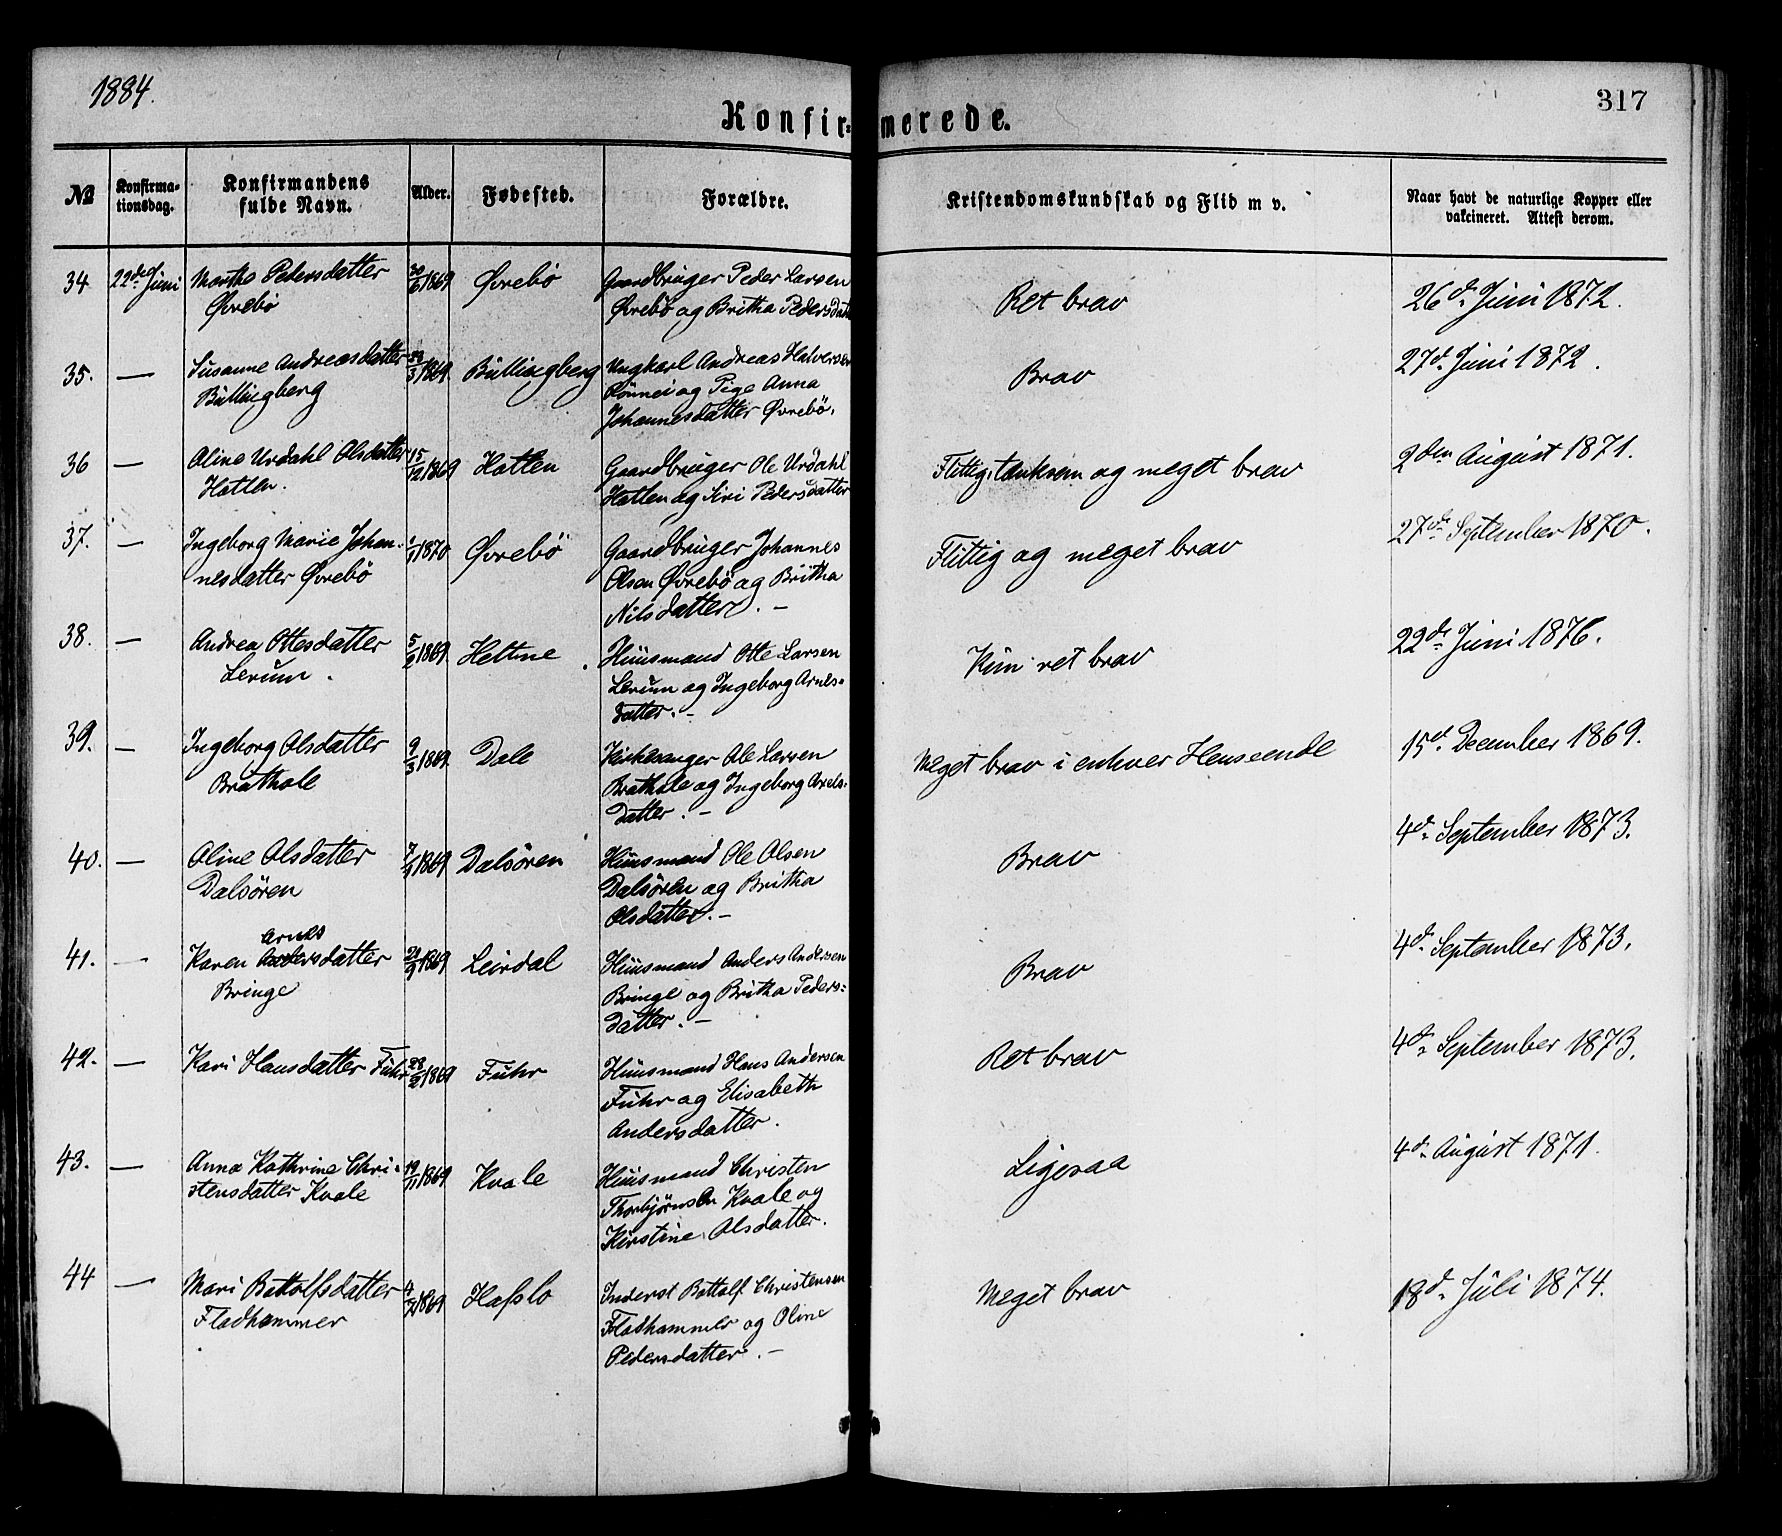 1884.
317
Konfirmerede.
№ Konfirmationsdag. Konfirmandens fulde Navn. Alder. Fødested. Forældre. Kristendomskundskab og Flid m v. Naar havt de naturlige Kopper eller vakcineret. Attest derom.
34 22de Juni Marthe Pedersdatter 30/6 1869 Øvrebö Gaardbruger Peder Larsen Ret brav 26d. Juni 1872.
Øvrebö Øvrebö og Britha Pedersdatt
35. — Susanne Andreasdatter /3 1869 Büllingberg Ungkarl Andreas Halversen Brav 27d. Juni 1872.
Büllingberg Rönnei og Pige Anna
Johannesdatter Øvrebö.
36 — Oline Urdahl Olsdatter 15/12 1869 Hatlen Gaardbruger Ole Urdahl Flittig, tænksom og meget brav 2den August 1871.
Hatlen. Hatlen og Siri Pedersdatter
37. — Ingeborg Marie Johan- 1/1 1870 Øvrebö Gaardbruger Johannes Flittig og meget brav 27de September 1870.
nesdatter Øvrebö Olsen Øvrebö og Britha
Nilsdatter. —
38. — Andrea Ottesdatter 5/2 1869 Hettne Huusmand Otte Larsen Kun ret brav 22de Juni 1876.
Lerum. Lerum og Ingeborg Arnes-
datter. —
39. — Ingeborg Olsdatter 9/3 1869 Dale Kirkesanger Ole Larsen Meget brav i enhver Henseende 15d. December 1869.
Bråthole Brathole og Ingeborg Axels-
datter. —
40. — Oline Olsdatter 7/9 1869 Dalsören Huusmand Ole Olsen Brav 4d. September 1873.
Dalsören Dalsören og Britha
Olsdatter. —
Arnes
41. — Karen Andersdatter 29/9 1869 Leirdal Huusmand Anders Andersen Brav 4d. September 1873.
Bringe Bringe og Britha Peders-
datter. —
42. — Kari Hansdatter Fuhr 28/2 1869 Fuhr Huusmand Hans Andersen Ret brav 4d. September 1873.
Fuhr og Elisabeth
Andersdatter.
43. — Anna Kathrine Chri- 19/11 1869 Kvale Huusmand Christen Ligesaa 4d. August 1871.
stensdatter Kvale Thorbjørnsen Kvale og
Kirstine Olsdatter.
44 — Mari Bottolfsdatter 4/7 1869 Hafslo Inderst Bottolf Christensen Meget brav 18d. Juli 1874.
Fladhammer Fladhammer og Oline
Pedersdatter. —